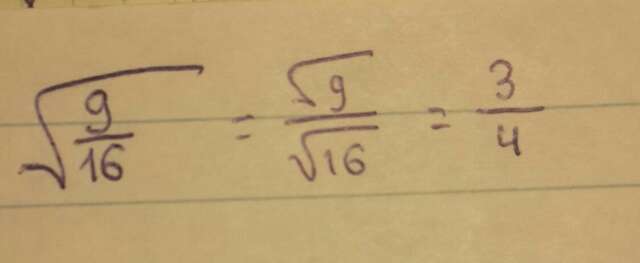 √(9/16) = √9/√16 = 3/4